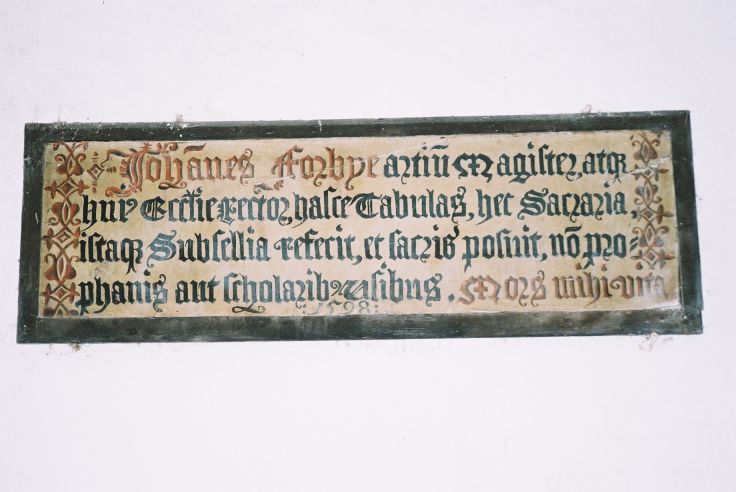 Johānes fforbye artiū Magister, atq
huiꝰ Eccl̄ie Rector hasce Tabulas, hec Sacraria,
istaq Subsellia refecit, et sacris posuit, nō pro=
phanis aut scholarib Usibus. Mors mihi vita
:1598: